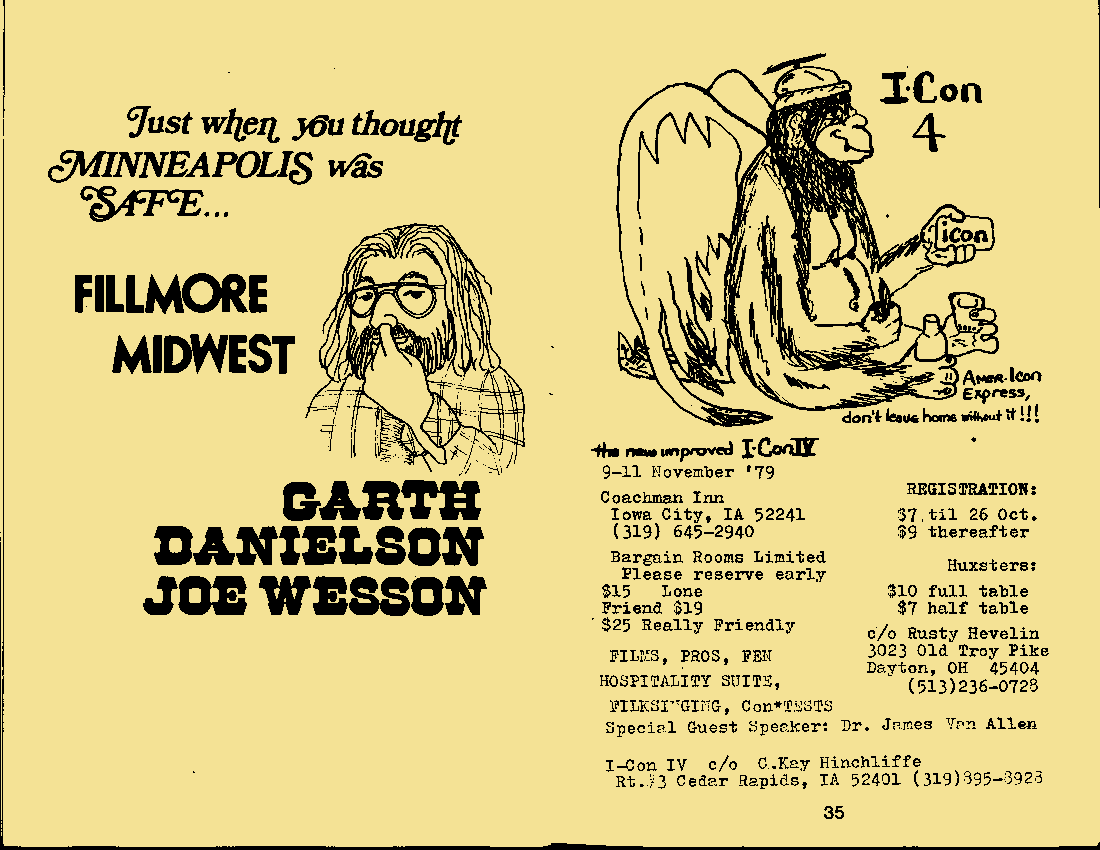 Just when you thought
MINNEAPOLIS was
SAFE...
FILLMORE
MIDWEST
GARTH
DANIELSON
JOE WESSON
I·Con
4
icon
AMER-Icon
Express,
don't leave home without it!!!
the new improved I-Con IV
9-11 November '79
Coachman Inn
Iowa City, IA 52241
(319) 645-2940
Bargain Rooms Limited
Please reserve early
$15 Lone
Friend $19
$25 Really Friendly
FILMS, PROS, FEN
HOSPITALITY SUITE,
FILKSINGING, Con*TESTS
Special Guest Speaker: Dr. James Van Allen
REGISTRATION:
$7 til 26 Oct.
$9 thereafter
Huxsters:
$10 full table
$7 half table
c/o Rusty Hevelin
3023 Old Troy Pike
Dayton, OH 45404
(513)236-0728
I-Con IV c/o C.Kay Hinchliffe
Rt. 3 Cedar Rapids, IA 52401 (319)895-8928
35